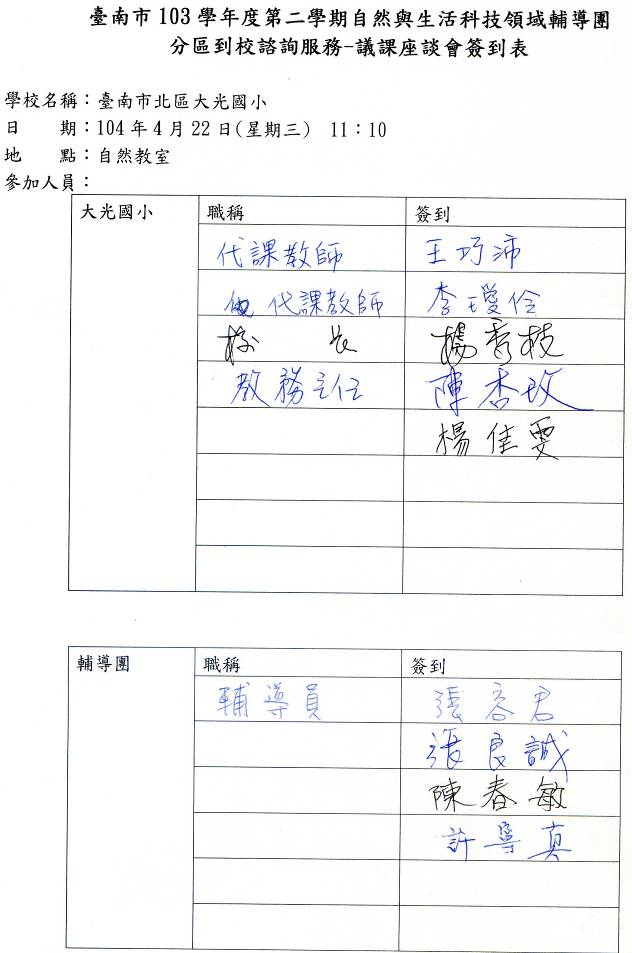 臺南市 103 學年度第二學期自然與生活科技領域輔導團
分區到校諮詢服務-議課座談會簽到表
學校名稱：臺南市北區大光國小
日　　期：104 年 4 月 22 日(星期三)　11：10
地　　點：自然教室
參加人員：
大光國小　職稱　簽到
代課教師　王巧沛
代課教師　李璦伶
校長　楊秀枝
教務主任　陳杏玫
楊佳雯
輔導團　職稱　簽到
輔導員　張容君
張良誠
陳春敏
許寧真